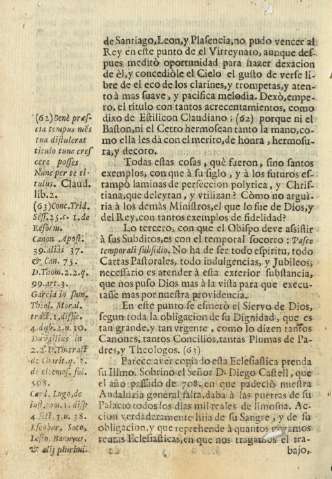 de Santiago, Leon, y Plasencia, no pudo vencer al
Rey en este punto de el Virreynato, aunque des-
pues meditò oportunidad para hazer dexacion
de èl, y concediòle el Cielo el gusto de verse li-
bre de el eco de los clarines, y trompetas, y aten-
to à mas suave, y pacifica melodia. Dexò, empe-
ro, el titulo con tantos acrecentamientos, como
dixo de Estilicon Claudiano: (62) porque ni el
Baston, ni el Cetro hermosean tanto la mano, co-
mo ella les dà con el merito, de honra, hermosu-
ra, y decoro.
Todas estas cosas, què fueron, sino santos
exemplos, con que à su siglo, y à los futuros es-
tampò laminas de perfeccion polytica, y Chris-
tiana, que deleytan, y utilizan? Còmo no argui-
rà à los demàs Ministros, el que lo fue de Dios, y
del Rey, con tantos exemplos de fidelidad?
Lo tercero, con que el Obispo deve assistir
à sus Subditos, es con el temporal socorro: Pasce
temporali subsidio. No ha de ser todo espiritu, todo
Cartas Pastorales, todo indulgencias, y Jubileos;
necessario es atender à esta exterior substancia,
que nos puso Dios mas à la vista para que execu-
tasse mas por nuestra providencia.
En este punto se esmerò el Siervo de Dios,
segun toda la obligacion de su Dignidad, que es
tan grande, y tan urgente, como lo dizen tantos
Canones, tantos Concilios, tantas Plumas de Pa-
dres, y Theologos. (63)
Parece aver copiado esta Eclesiastica prenda
su Illmo. Sobrino el Señor D. Diego Castell, que
el año passado de 708. en que padeciò nuestra
Andaluzia general falta, daba à las puertas de su
Palacio todos los dias mil reales de limosna. Ac-
cion verdaderamente hija de su Sangre, y de su
obligacion, y que reprehende à quantos
rentas Eclesiasticas, en que nos tragamos el tra-
bajo,
(62) Benè præs-
tita tempus
titulo tunc cres-
cere posses
Nunc per te ti-
tulus. Claud.
lib. 2.
(63) Conc. Trid.
Sess. 25. c. 1. de
Reform.
Canon. Apost.
39. aliàs 37.
& Can. 75.
D. Thom. 2. 2. q.
99. art. 3.
Garcia in sum.
Theol. Moral.
tract. 1.
in
2. 2. D. Tract.
508.
Card. Lugo, de
Escobar, Soto,
& alij plurimi.